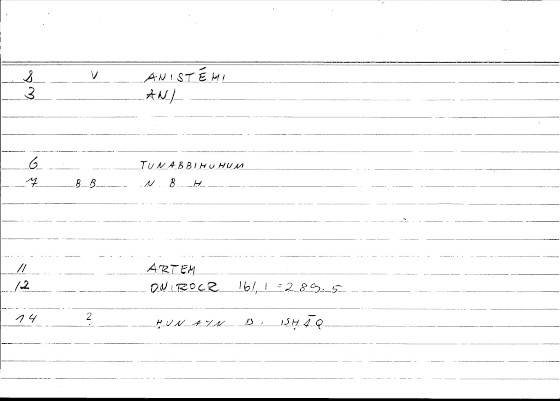 8 V ANISTĒMI
3 AN/
6 TUNABBIHUHUM
7 BB N B H
11 ARTEM
12 ONIROCR 161,1 = 289.5
14 2 ḤUNAYN B. ISḤĀQ